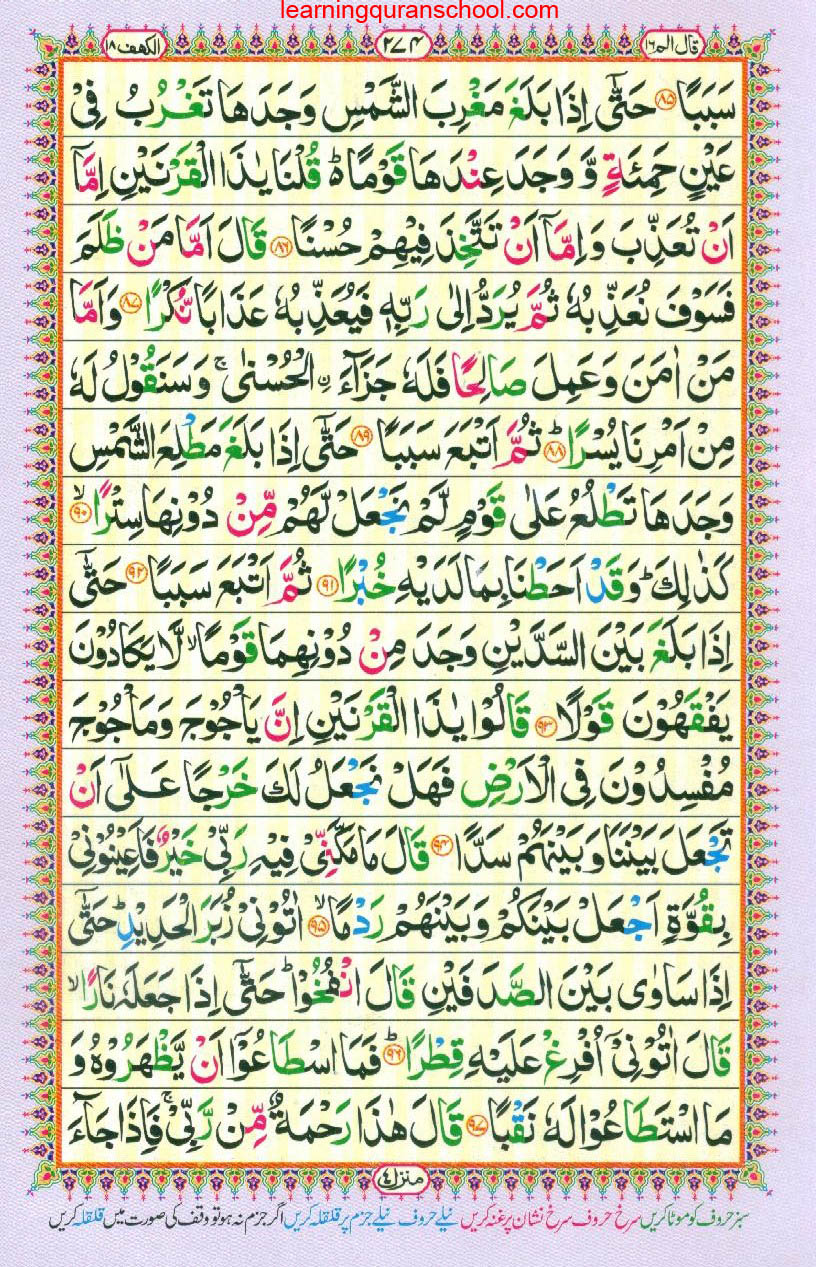 learningquranschool.com
قال الم ١٦
٢٧٤
الکھف ١٨
سَبَبًا ﴿۸۵﴾ حَتّٰۤی اِذَا بَلَغَ مَغْرِبَ الشَّمْسِ وَجَدَهَا تَغْرُبُ فِیْ
عَیْنٍ حَمِئَةٍ وَّ وَجَدَ عِنْدَهَا قَوْمًا ؕ قُلْنَا یٰذَا الْقَرْنَیْنِ اِمَّاۤ
اَنْ تُعَذِّبَ وَ اِمَّاۤ اَنْ تَتَّخِذَ فِیْهِمْ حُسْنًا ﴿۸۶﴾ قَالَ اَمَّا مَنْ ظَلَمَ
فَسَوْفَ نُعَذِّبُهٗ ثُمَّ یُرَدُّ اِلٰی رَبِّهٖ فَیُعَذِّبُهٗ عَذَابًا نُّكْرًا ﴿۸۷﴾ وَ اَمَّا
مَنْ اٰمَنَ وَ عَمِلَ صَالِحًا فَلَهٗ جَزَآءَ ࣙالْحُسْنٰی ۚ وَ سَنَقُوْلُ لَهٗ
مِنْ اَمْرِنَا یُسْرًا ﴿۸۸﴾ ثُمَّ اَتْبَعَ سَبَبًا ﴿۸۹﴾ حَتّٰۤی اِذَا بَلَغَ مَطْلِعَ الشَّمْسِ
وَجَدَهَا تَطْلُعُ عَلٰی قَوْمٍ لَّمْ نَجْعَلْ لَّهُمْ مِّنْ دُوْنِهَا سِتْرًا ﴿۹۰﴾ۙ
كَذٰلِكَ ؕ وَ قَدْ اَحَطْنَا بِمَا لَدَیْهِ خُبْرًا ﴿۹۱﴾ ثُمَّ اَتْبَعَ سَبَبًا ﴿۹۲﴾ حَتّٰۤی
اِذَا بَلَغَ بَیْنَ السَّدَّیْنِ وَجَدَ مِنْ دُوْنِهِمَا قَوْمًا ۙ لَّا یَكَادُوْنَ
یَفْقَهُوْنَ قَوْلًا ﴿۹۳﴾ قَالُوْا یٰذَا الْقَرْنَیْنِ اِنَّ یَاْجُوْجَ وَ مَاْجُوْجَ
مُفْسِدُوْنَ فِی الْاَرْضِ فَهَلْ نَجْعَلُ لَكَ خَرْجًا عَلٰۤی اَنْ
تَجْعَلَ بَیْنَنَا وَ بَیْنَهُمْ سَدًّا ﴿۹۴﴾ قَالَ مَا مَكَّنِّیْ فِیْهِ رَبِّیْ خَیْرٌ فَاَعِیْنُوْنِیْ
بِقُوَّةٍ اَجْعَلْ بَیْنَكُمْ وَ بَیْنَهُمْ رَدْمًا ﴿۹۵﴾ۙ اٰتُوْنِیْ زُبَرَ الْحَدِیْدِ ؕ حَتّٰۤی
اِذَا سَاوٰی بَیْنَ الصَّدَفَیْنِ قَالَ انْفُخُوْا ؕ حَتّٰۤی اِذَا جَعَلَهٗ نَارًا ۙ
قَالَ اٰتُوْنِیْۤ اُفْرِغْ عَلَیْهِ قِطْرًا ﴿۹۶﴾ؕ فَمَا اسْطَاعُوْۤا اَنْ یَّظْهَرُوْهُ وَ
مَا اسْتَطَاعُوْا لَهٗ نَقْبًا ﴿۹۷﴾ قَالَ هٰذَا رَحْمَةٌ مِّنْ رَّبِّیْ ۚ فَاِذَا جَآءَ
منزل ٤
سبز حروف کو موٹا کریں سرخ حروف سرخ نشان پر غنہ کریں نیلے حروف نیلے جزم پر قلقلہ کریں اگر جزم نہ ہو تو وقف کی صورت میں قلقلہ کریں